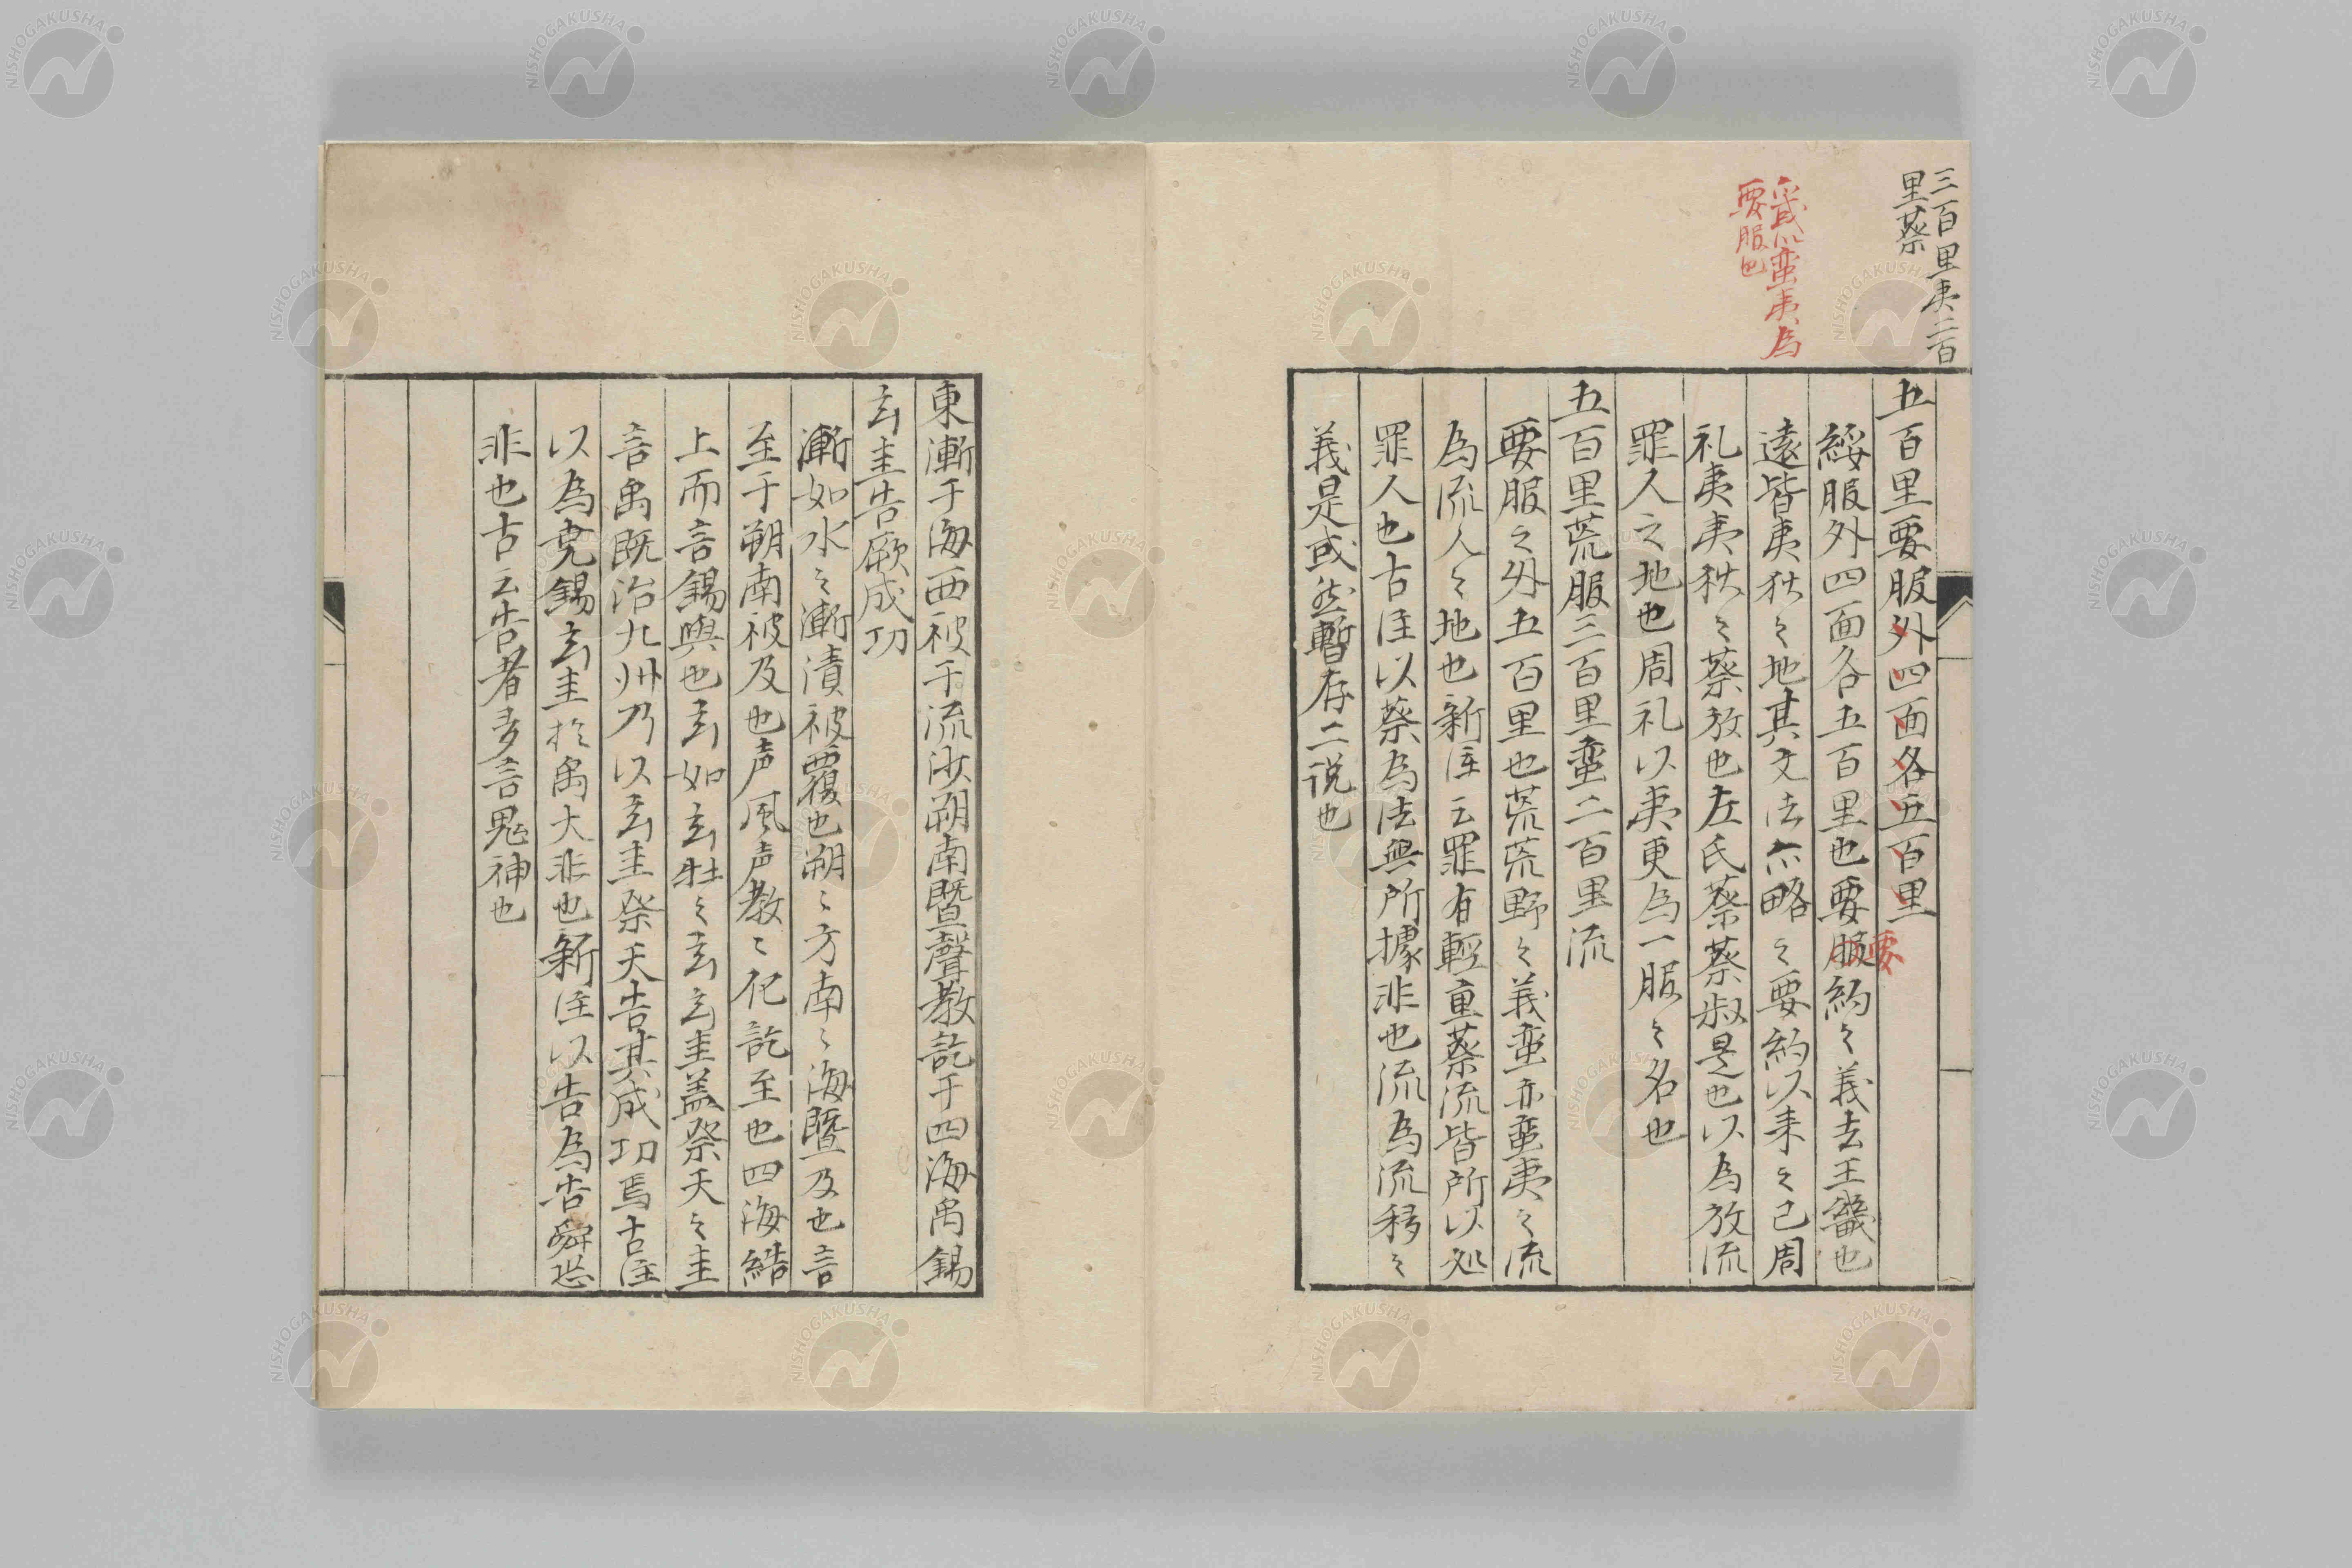 三百里夷二百
里蔡
畿以蛮夷為
要服也
五百里要服外四面各五百里
綏服外四面各五百里也要服約之義去王畿也
要
遠皆夷狄之地其文法亦略之要約以来之已周
礼夷夷狄之蔡放也左氏蔡蔡叔是也以為放流
罪人之地也周礼以夷更為一服之名也
五百里荒服三百里蛮二百里流
要服之外五百里也荒荒野之義蛮亦蛮夷之流
為流人之地也新注云罪有輕重蔡流皆所以処
罪人也古注以蔡為法無所據非也流為流移之
義是或然暫存二説也
東漸于海西被于流沙朔南曁聲教訖于四海禹錫
玄圭告厥成功
漸如水之漸漬被覆也朔〻方南〻海曁及也言
至于朔南被及也声風声教〻化訖至也四海結
上而言錫與也玄如玄牡之玄玄圭盖祭天之圭
言禹既治九州乃以玄圭祭天告其成功焉古注
以為尭錫玄圭於禹大非也新注以告為告舜恐
非也古云告者多言鬼神也
NISHOGAKUSHA